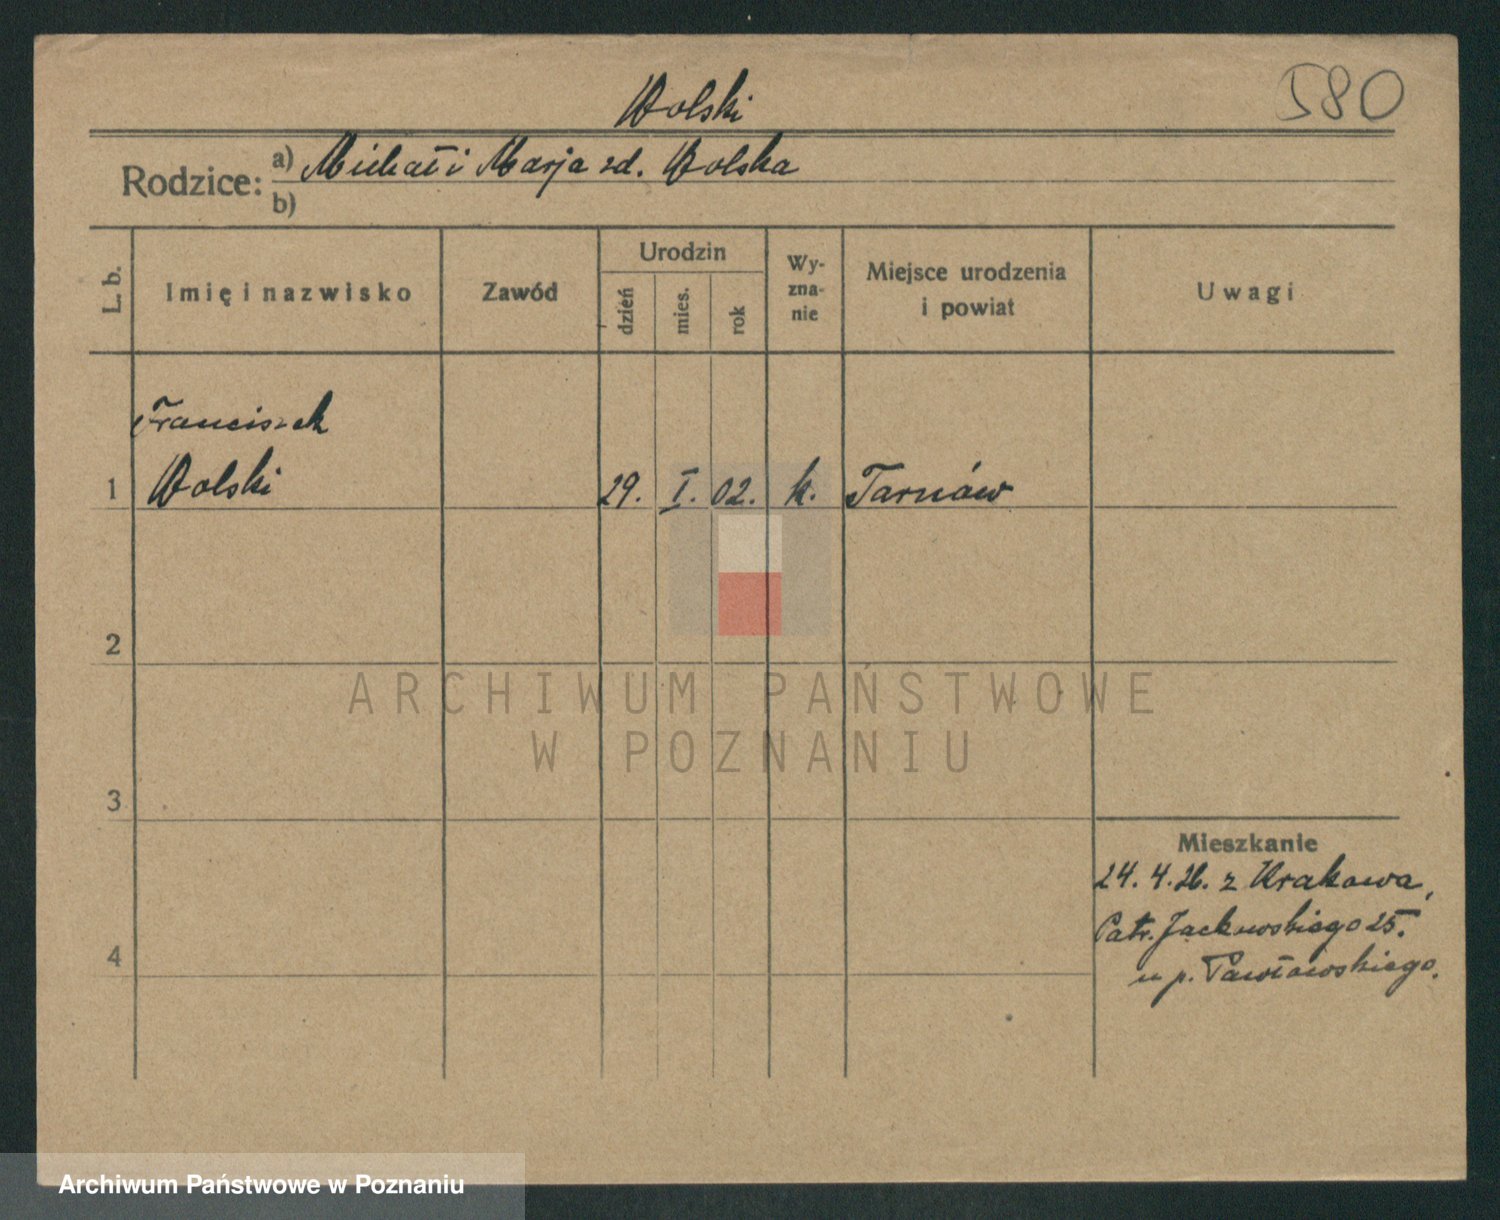 580
Wolski
Rodzice: a) Michał i Marja zd. Wolska
b)
L. b.
Imię i nazwisko
Zawód
Urodzin
dzień
mies.
rok
Wy-
zna-
nie
Miejsce urodzenia
i powiat
Uwagi
Franciszek
1 Wolski 29. I. 02. k. Tarnów
2
ARCHIWUM PAŃSTWOWE
W POZNANIU
3
Mieszkanie
24. 4. 26. z Krakowa,
Patr. Jackowskiego 25.
4
u p. Pawłowskiego.
Archiwum Państwowe w Poznaniu